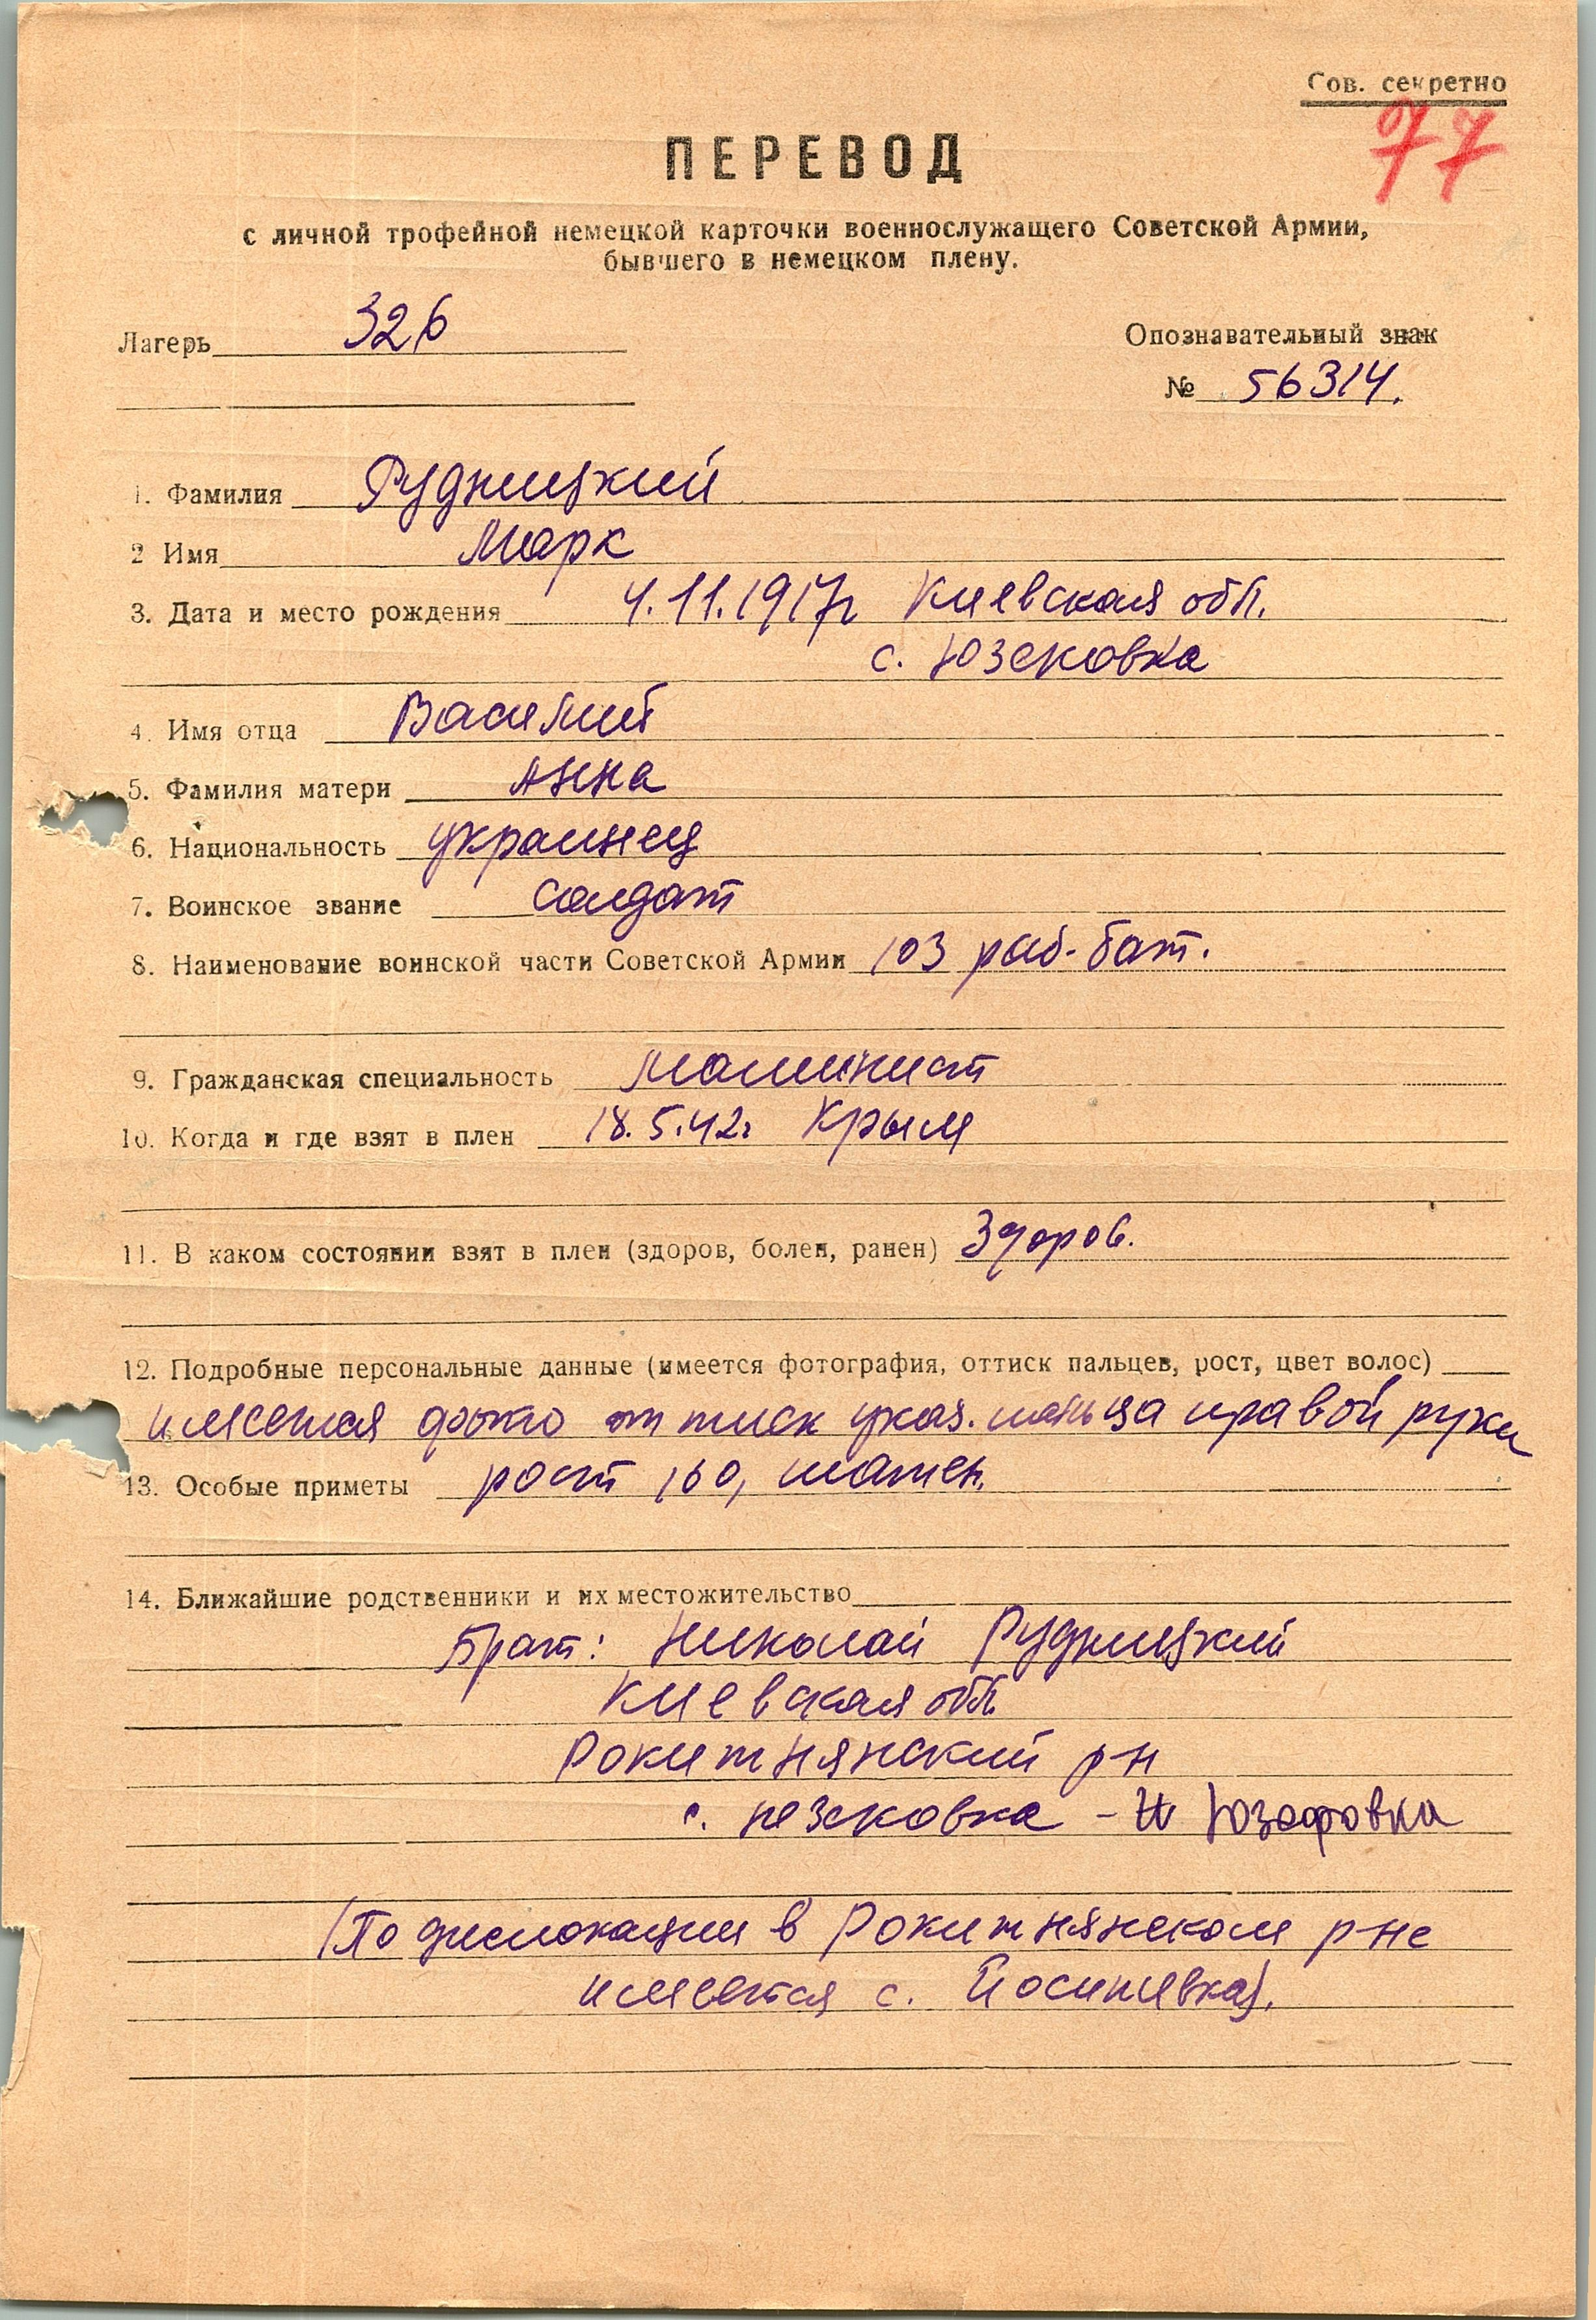 Сов. секретно
77
ПЕРЕВОД
с личной трофейной немецкой карточки военнослужащего Советской Армии,
бывшего в немецком плену.
Лагерь 326
Опознавательный знак
№ 56314.
1. Фамилия Рудницкий
2 Имя Марк
3. Дата и место рождения 4.11.1917г Киевская обл.
с. Юзековка
4. Имя отца Василий
5. Фамилия матери Анна
6. Национальность украинец
7. Воинское звание солдат
8. Наименование воинской части Советской Армии 103 раб. бат.
9. Гражданская специальность машинист
10. Когда и где взят в плен 18.5.42г Крым
11. В каком состоянии взят в плен (здоров, болен, ранен) Здоров.
12. Подробные персональные данные (имеется фотография, оттиск пальцев, рост, цвет волос)
имеется фото оттиск указ. пальца правой руки
13. Особые приметы рост 160, шатен.
14. Ближайшие родственники и их местожительство
Брат: Николай Рудницкий
Киевская обл.
Рокитнянский р-н
с. - Юзефовка
(По дислокации в Рокитнянском р-не
имеется с. Йосиповка).